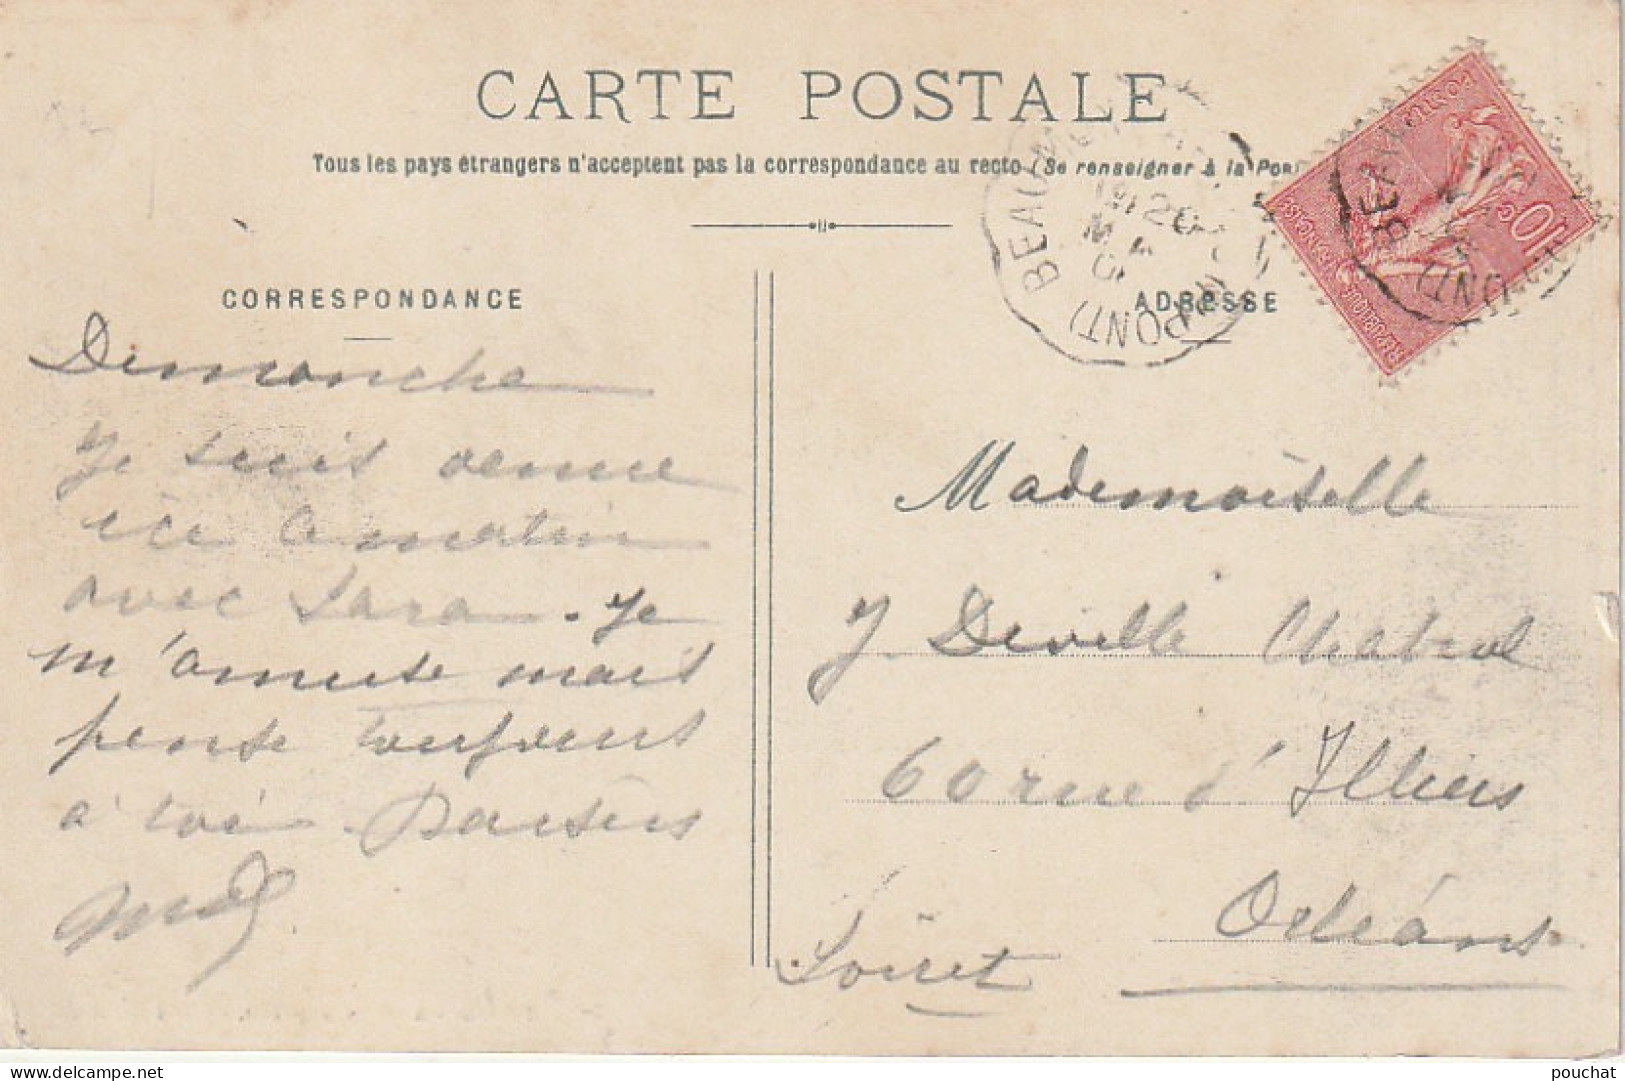 CARTE POSTALE
Tous les pays étrangers n'acceptent pas la correspondance au recto (Se renseigner à la Pos
CORRESPONDANCE
ADRESSE
Dimanche
Je suis venue
ici ce matin
avec Sara. Je
m'amuse mais
pense toujours
à toi. Baisers
Mademoiselle
J. Deville Chabrol
60 rue d'Illiers
Orléans
Loiret
POSTES
10c
REPUBLIQUE FRANÇAISE
BEAUMONT
pouchat